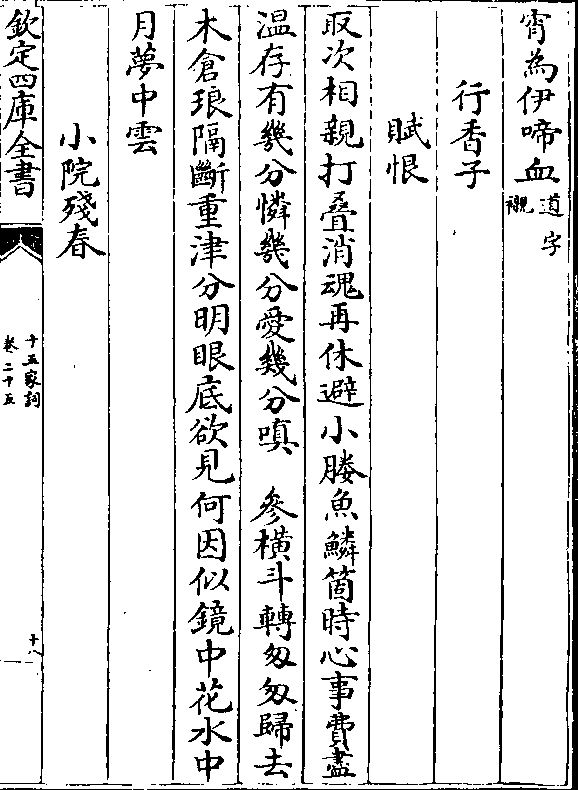 宵為伊啼血
道字
襯
行香子
賦恨
取次相親打疊消魂再休避小媵魚鱗箇時心事費盡
温存有幾分憐幾分愛幾分嗔　參橫斗轉匆匆歸去
木倉琅隔斷重津分明眼底欲見何因似鏡中花水中
月夢中雲
小院殘春
欽定四庫全書
十五家詞
卷二十五
十八